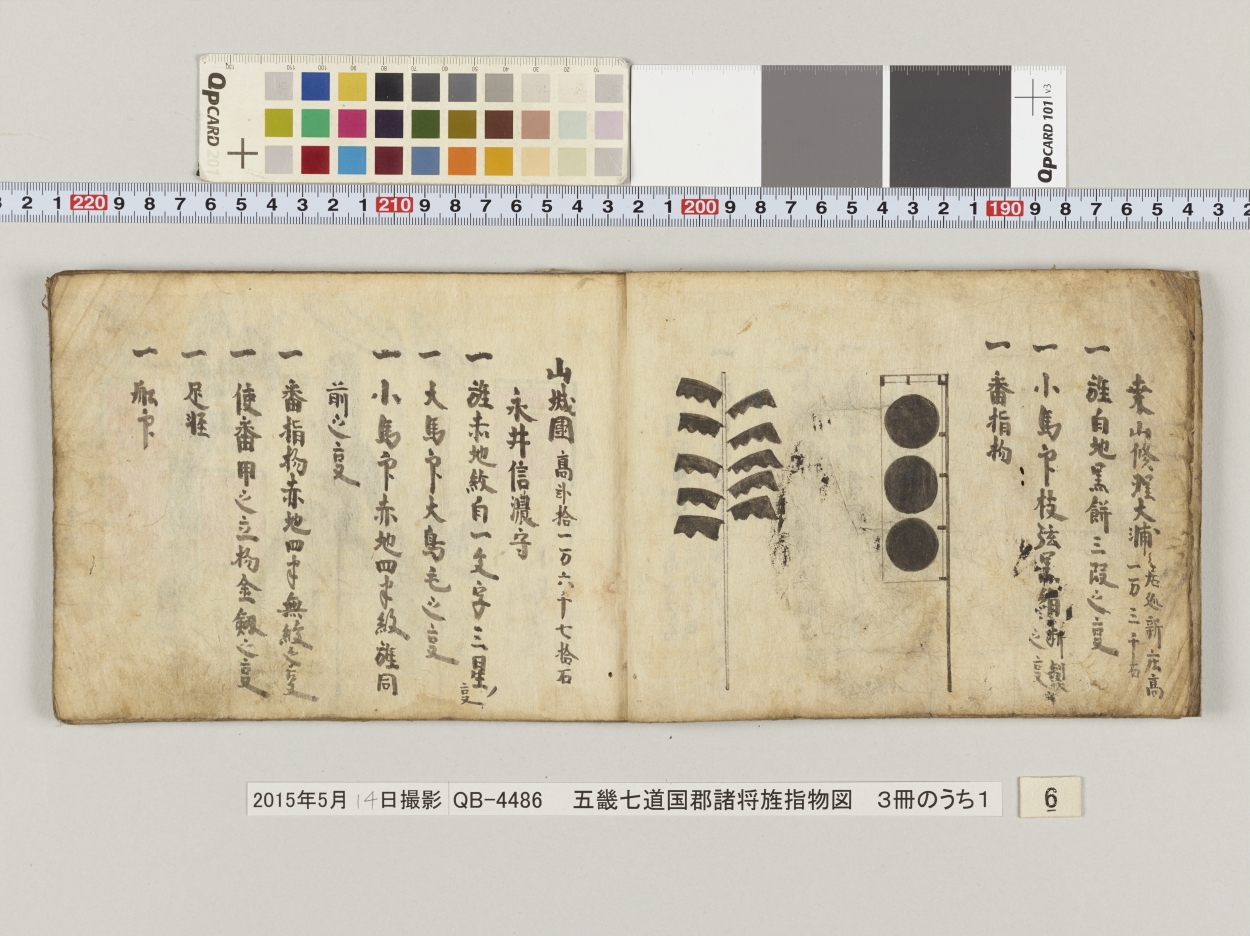 QPCARD 201
QPCARD 101 v3
3 2 1 220 9 8 7 6 5 4 3 2 1 210 9 8 7 6 5 4 3 2 1 200 9 8 7 6 5 4 3 2 1 190 9 8 7 6 5 4 3 2
桒山修理大浦 居処新庄高
一万三千石
一 旌自地黒餅三段之㕝
一 小馬印枝弦黒絹 製
之㕝
一 番指物
山城國 高弐拾一万六千七拾石
永井信濃守
一 旌赤地紋自一文字三星ノ
㕝
一 大馬印大鳥毛之㕝
一 小馬印赤地四半紋旌同
前之㕝
一 番指物赤地四半無紋之㕝
一 使番甲之立物金劔之㕝
一 足軽
一 舩印
2015年5月14日撮影 QB-4486 五畿七道国郡諸将旌指物図 3冊のうち1
6